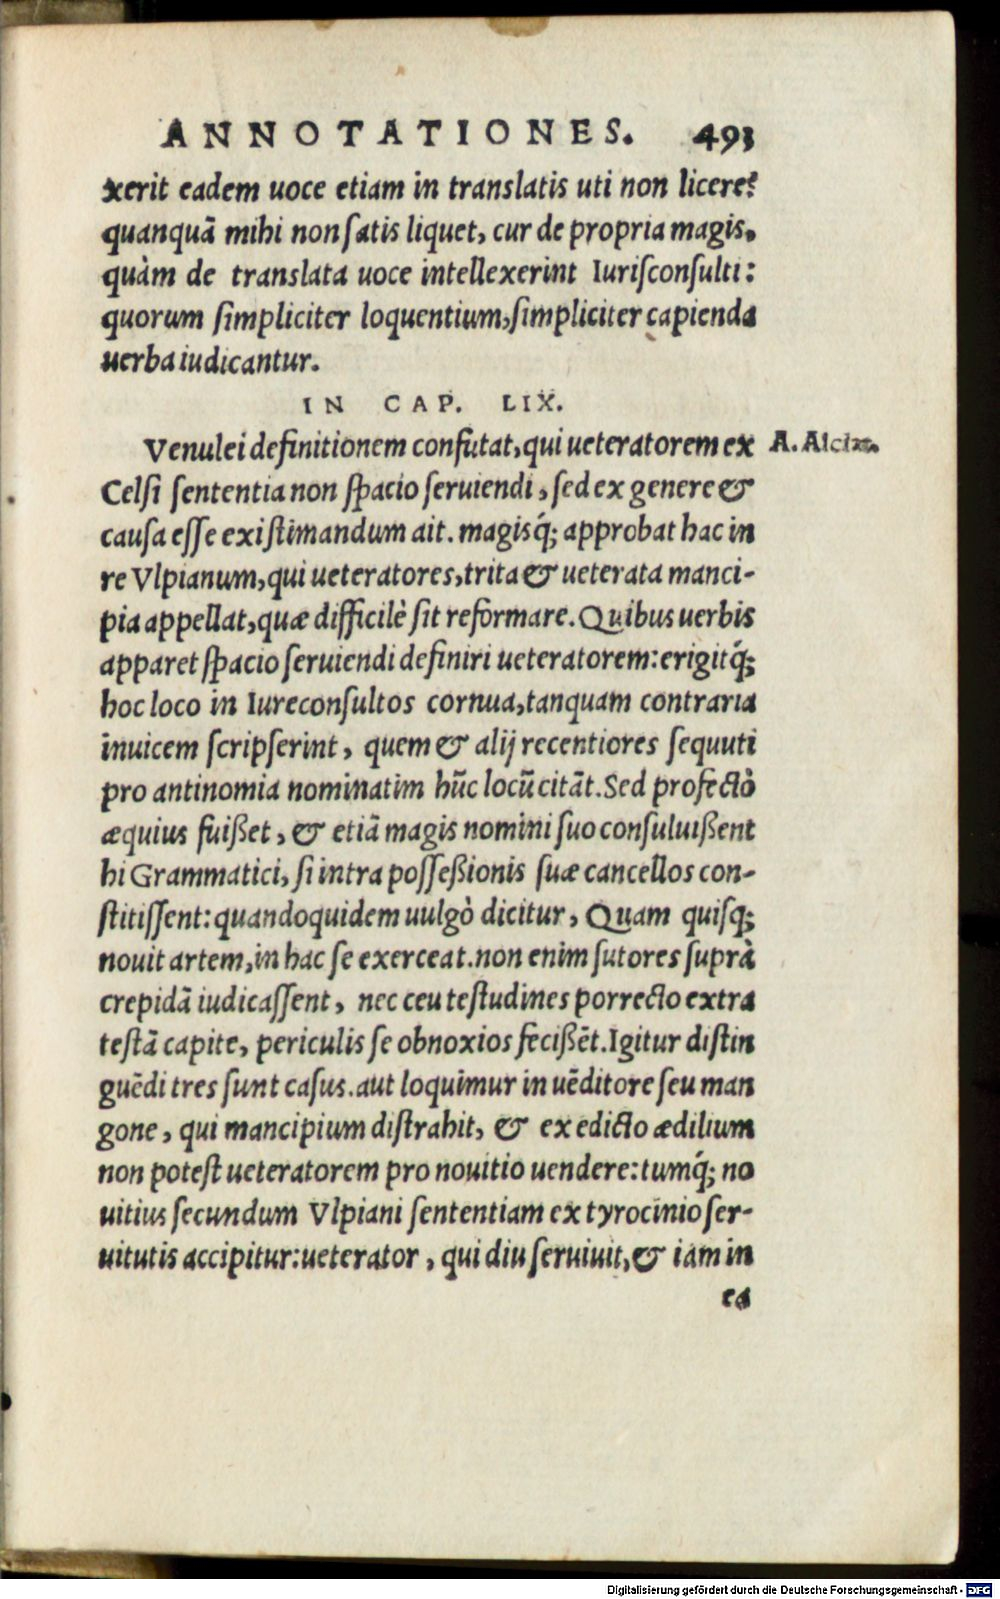 ANNOTATIONES. 493
xerit eadem uoce etiam in translatis uti non licere?
quanquā mihi non ſatis liquet, cur de propria magis,
quàm de translata uoce intellexerint Iuriſconſulti:
quorum ſimpliciter loquentium, ſimpliciter capienda
uerba iudicantur.
IN CAP. LIX.
Venulei definitionem confutat, qui ueteratorem ex A. Alciat.
Celſi ſententia non ſpacio ſeruiendi, ſed ex genere &
cauſa eſſe exiſtimandum ait. magisq́; approbat hac in
re Vlpianum, qui ueteratores, trita & ueterata manci-
pia appellat, quæ difficilè ſit reformare. Quibus uerbis
apparet ſpacio ſeruiendi definiri ueteratorem: erigitq́;
hoc loco in Iureconſultos cornua, tanquam contraria
inuicem ſcripſerint, quem & alij recentiores ſequuti
pro antinomia nominatim hūc locū citāt. Sed profectò
æquius fuißet, & etiā magis nomini ſuo conſuluißent
hi Grammatici, ſi intra poſſeßionis ſuæ cancellos con-
ſtitiſſent: quandoquidem uulgò dicitur, Quam quiſq;
nouit artem, in hac ſe exerceat. non enim ſutores ſuprà
crepidā iudicaſſent, nec ceu teſtudines porrecto extra
teſtā capite, periculis ſe obnoxios fecißēt. Igitur diſtin
guēdi tres ſunt caſus. aut loquimur in uēditore ſeu man
gone, qui mancipium diſtrahit, & ex edicto ædilium
non poteſt ueteratorem pro nouitio uendere: tumq́; no
uitius ſecundum Vlpiani ſententiam ex tyrocinio ſer-
uitutis accipitur: ueterator, qui diu ſeruiuit, & iam in
ea
Digitalisierung gefördert durch die Deutsche Forschungsgemeinschaft - DFG